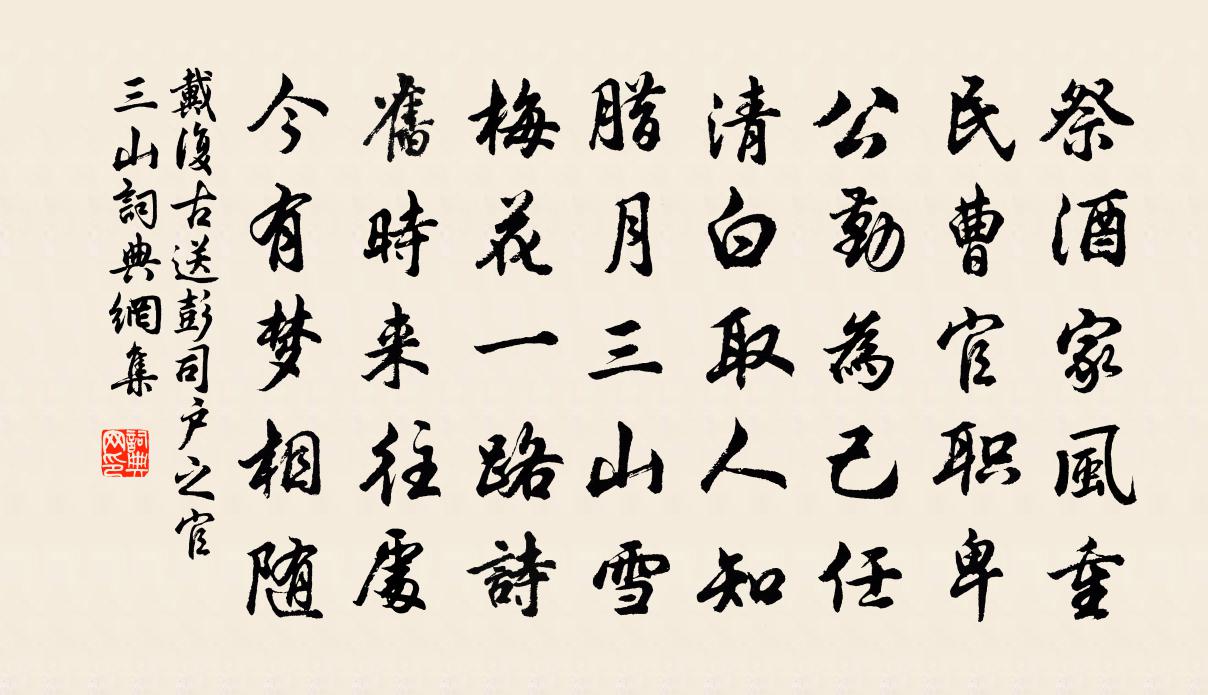 祭酒家風重
民曹官职卑
公勤為己任
清白取人知
腊月三山雪
梅花一路詩
舊時来往處
今有梦相随
戴復古送彭司户之官
三山詞典網集
詞典
网印